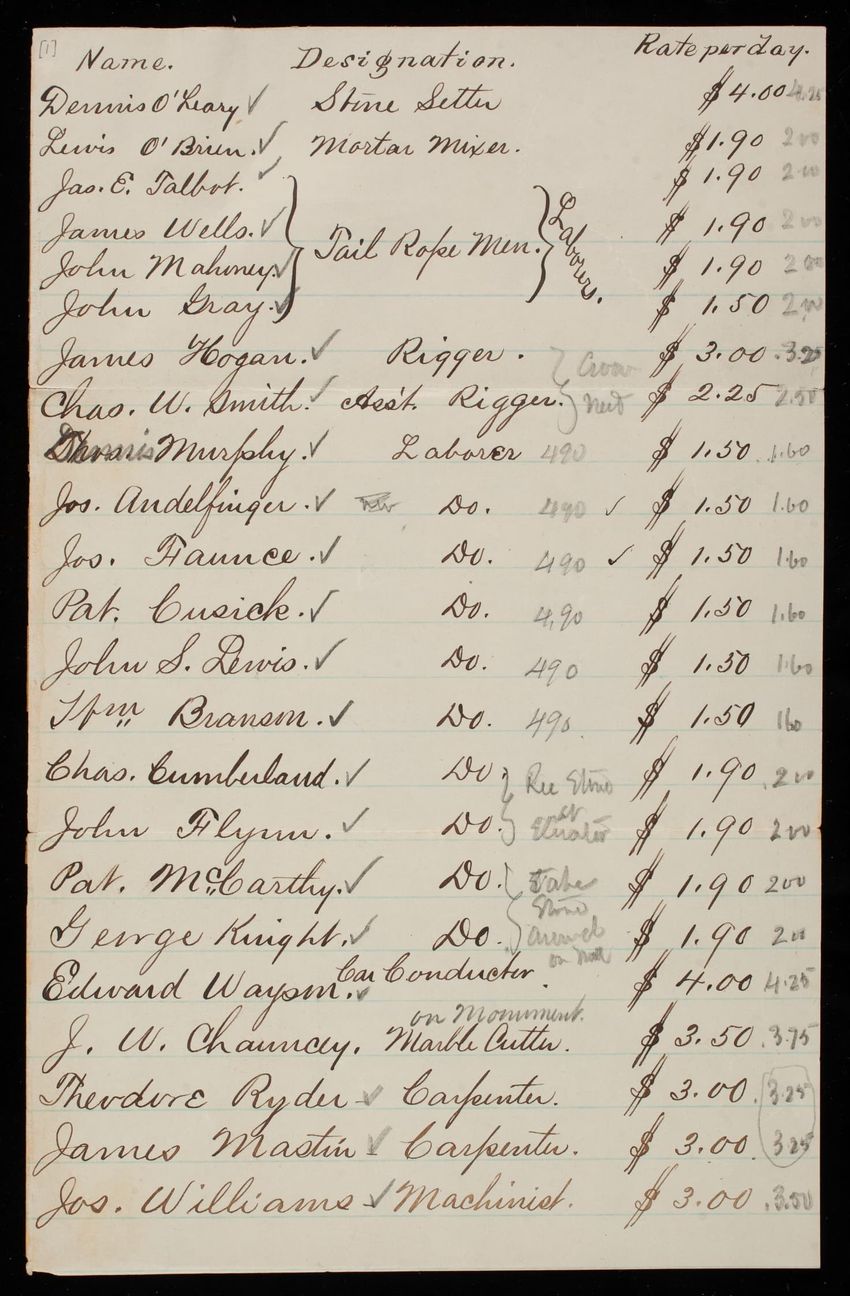 [1]
Name. Designation. Rate per day.
Dennis O'Leary ✓ Stone Setter $4.00 4.25
Lewis O'Brien. ✓ Mortar Mixer. $1.90 2 00
Jas. E. Talbot. ✓ $1.90 2 00
James Wells. ✓ $1.90 2 00
Tail Rope Men. Laborers.
John Mahoney. ✓ $1.90 2 00
John Gray. ✓ $1.50 2,00
James Hogan. ✓ Rigger. $3.00. 3.25
Chas. W. Smith. ✓ Ass't. Rigger. $2.25 2.50
Murphy. ✓ Laborer 490 $1.50 1.60
Jos. Andelfinger. ✓ Do. 490 ✓ $1.50 1.60
Jos. Faunce. ✓ Do. 490 ✓ $1.50 1.60
Pat. Cusick. ✓ Do. 4.90 $1.50 1.60
John S. Lewis. ✓ Do. 490 $1.50 1.60
Wm Branson. ✓ Do. 490. $1.50 160
Chas. Cumberland. ✓ Do. Rec Stone $1.90 2 00
at
John Flynn. ✓ Do. Elevator $1.90 2 00
Pat. McCarthy. ✓ Do. Take $1.90 2 00
Stone
George Knight. ✓ Do. around $1.90 2 00
on
Edward Wayson. ✓ Car Conductor. $4.00 4.25
on Monument.
J. W. Chauncey. Marble Cutter. $3.50. 3.75
Theodore Ryder ✓ Carpenter. $3.00. 3.25
James Mastin ✓ Carpenter. $3.00. 3.25
Jos. Williams ✓ Machinist. $3.00. 3.50